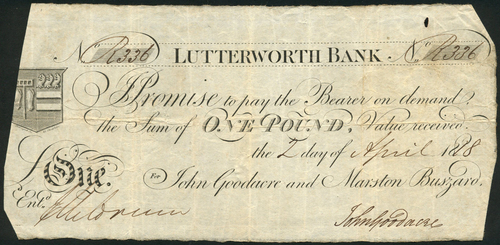 No R336 LUTTERWORTH BANK No R336
I Promise to pay the Bearer on demand
the Sum of ONE POUND, Value received.
the 2 day of April 18
£ One.
For John Goodacre and Marston Buszard.
Entd
John Goodacre